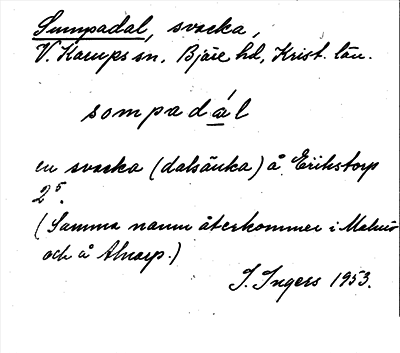 Sumpadal, svacka,
V. Karups sn, Bjäre hd, Krist. län.
sompadál
en svacka (dalsänka) å Erikstorp
2⁵.
(Samma namn återkommer i Malmö
och å Alnarp.)
I. Ingers 1953.